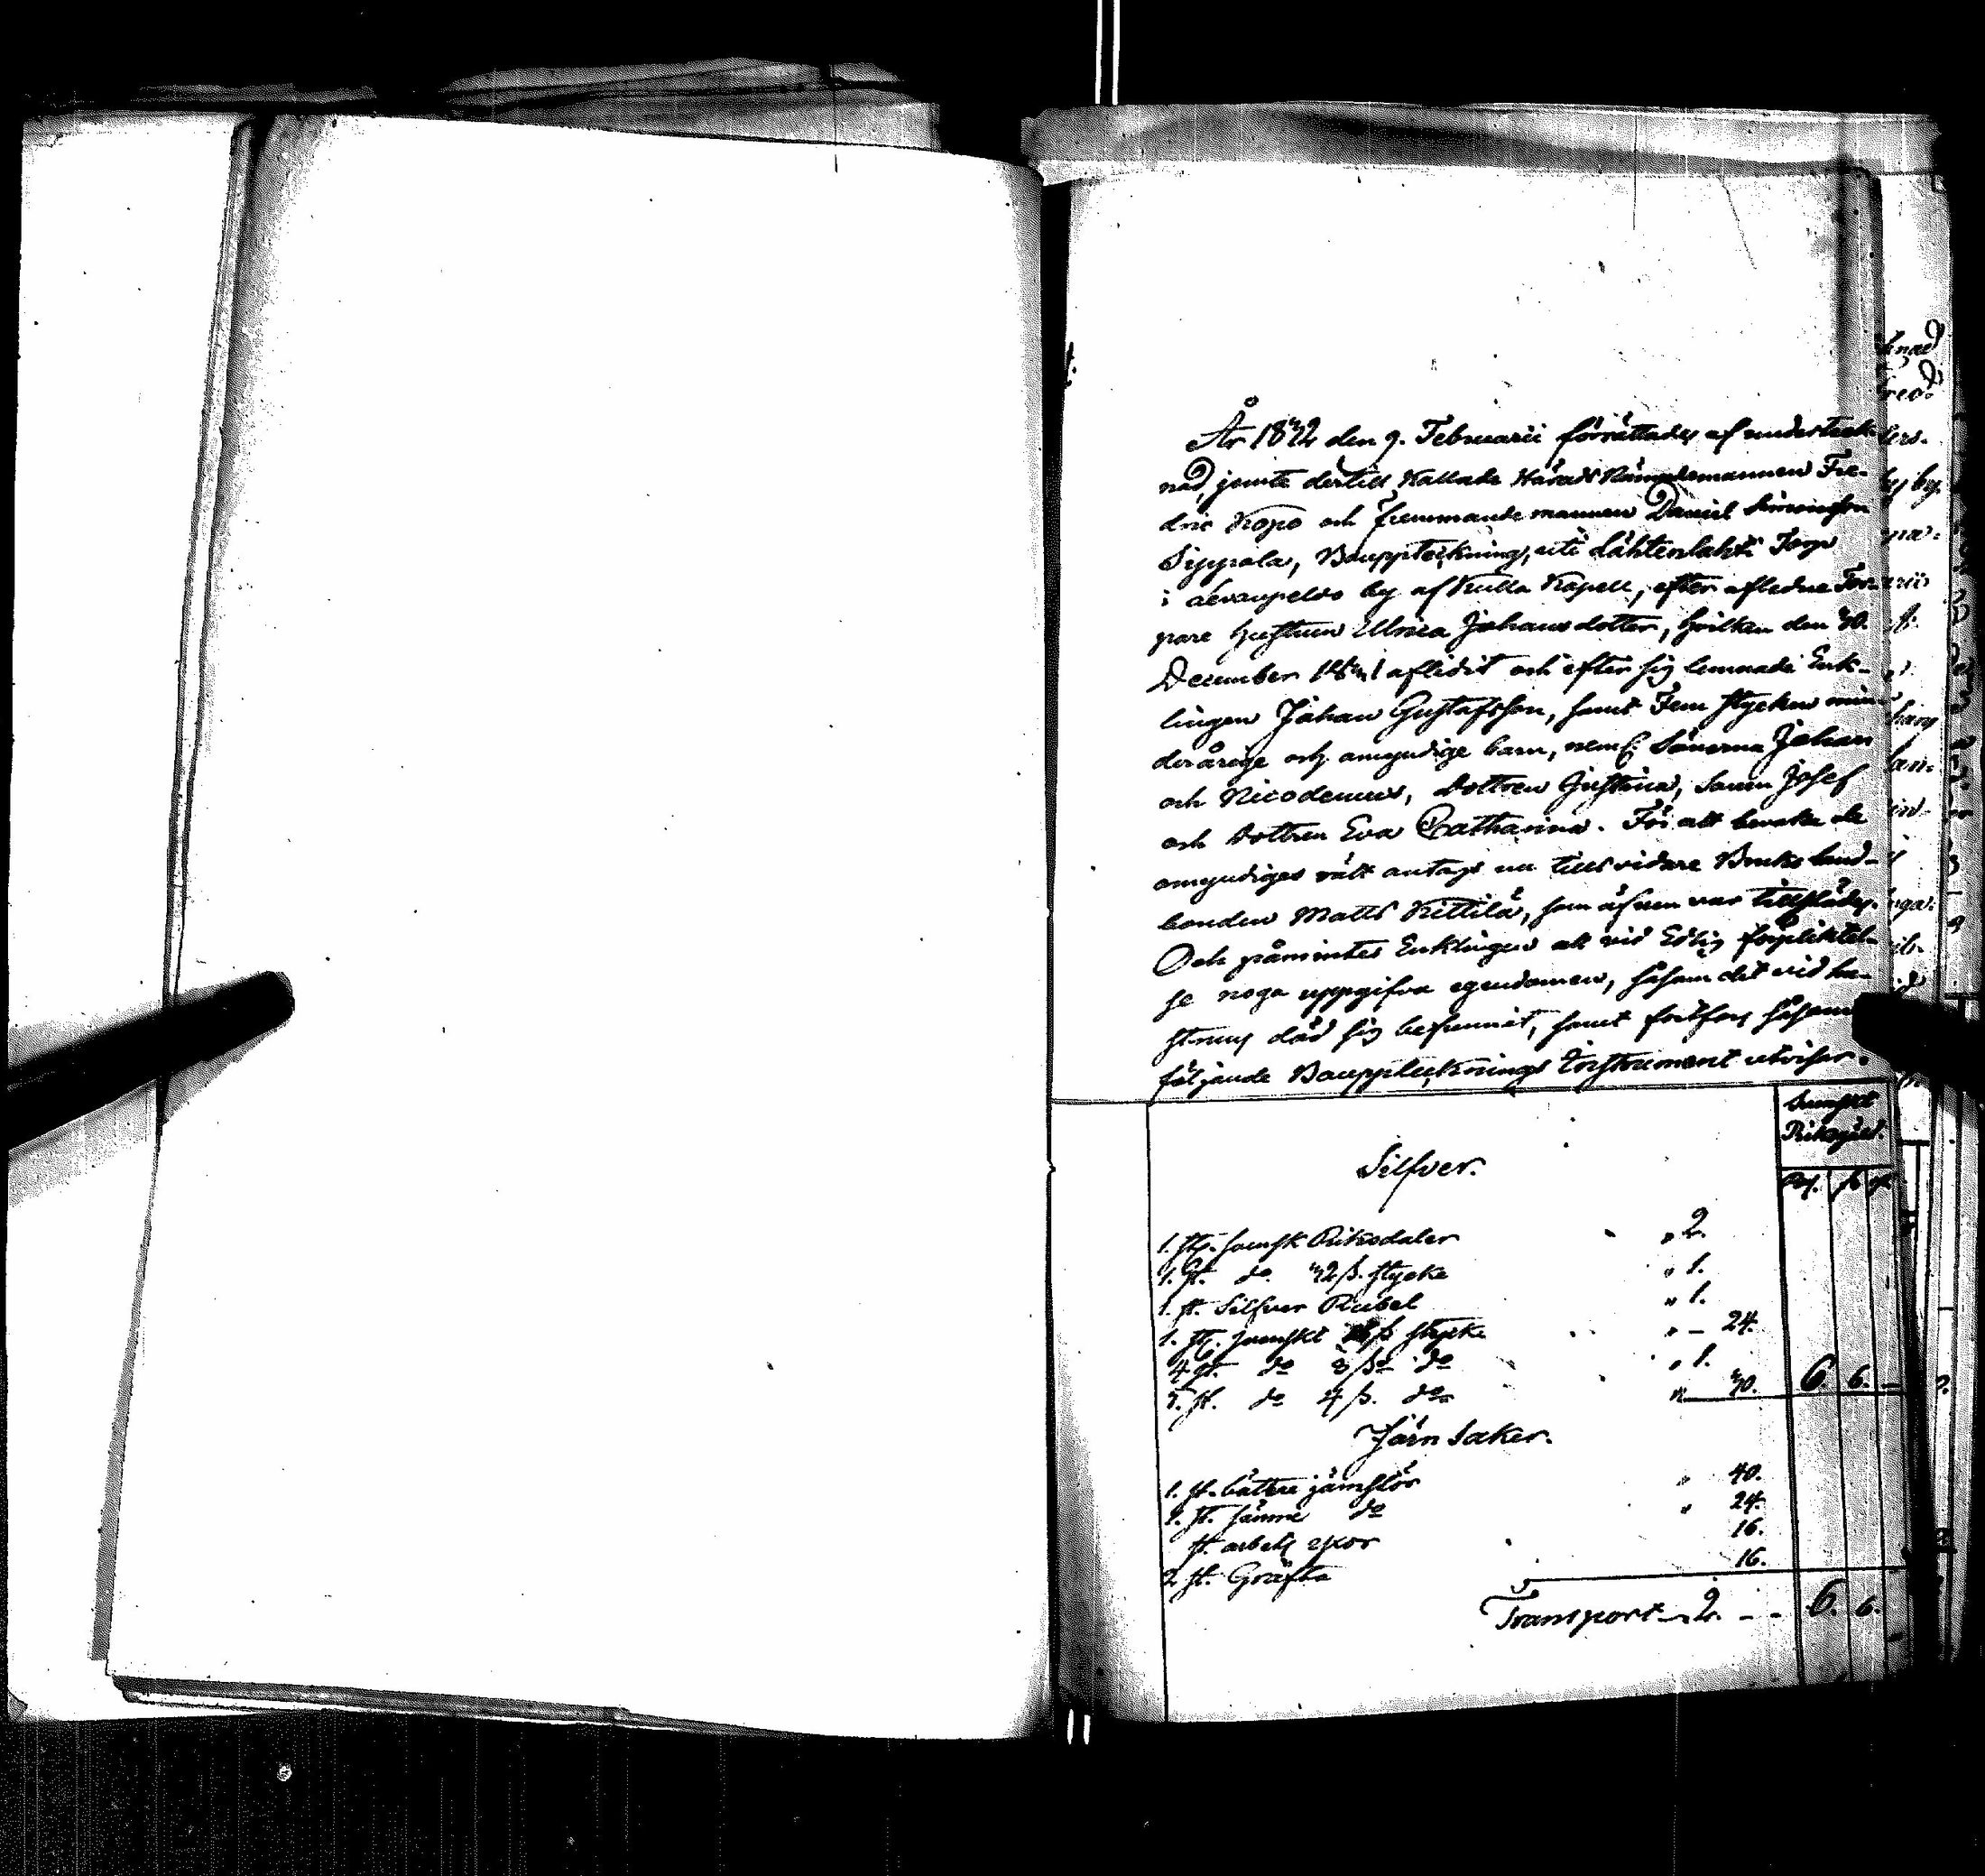 År 1842 den 9. Februarii förrättades af underteck-
nad, jemte dertill kallade Härads Nämndemannen Fre-
dric Kopo och fremmande mannen Daniel Simonsson
Sippola, Bouppteckning, uti Lähtenlahti Torp
i by af Kulla Kapell, efter aflidne Tor-
pare hustrun Ulrica Johansdotter, hvilken den 40.
December 1841 aflidit och efter sig lemnade Enk-
lingen Johan Gustafsson, samt Fem stycken min-
derårige och omyndige barn, neml: Sönerna Johan
och Nicodemus, Dottren Gustava, Sonen Josef
och Dottren Eva Catharina. För att bevaka de
omyndiges rätt antogs nu tills vidare Bruks land-
bonden Matts Kittilä, som äfven var tillstädes.
Och påmintes Enklingen att vid Edlig förpliktel-
se noga uppgifva egendomen, såsom det vid hu-
struns död sig befunnit, samt såsom
följande Boupptecknings Instrument utvisar.
Svenskt
Riksgäld.
Silfver.
Rd. ß rst
1. st. svensk Riksdaler " 2.
1. st. do 42 ß. stycke " 1.
1. st. Silfver Rubel " 1.
1. st. svenskt ß stycke " - 24.
4 st. do 8 ß do " 1.
5. st. do 4 ß. do " 40. 6. 6. -
Järn Saker.
1. st. bättre järnstör " 40.
1. st. sämre do " 24.
st. arbets yxor 16.
2 st. Gräfta 16.
Transport " 2. - - 6. 6.